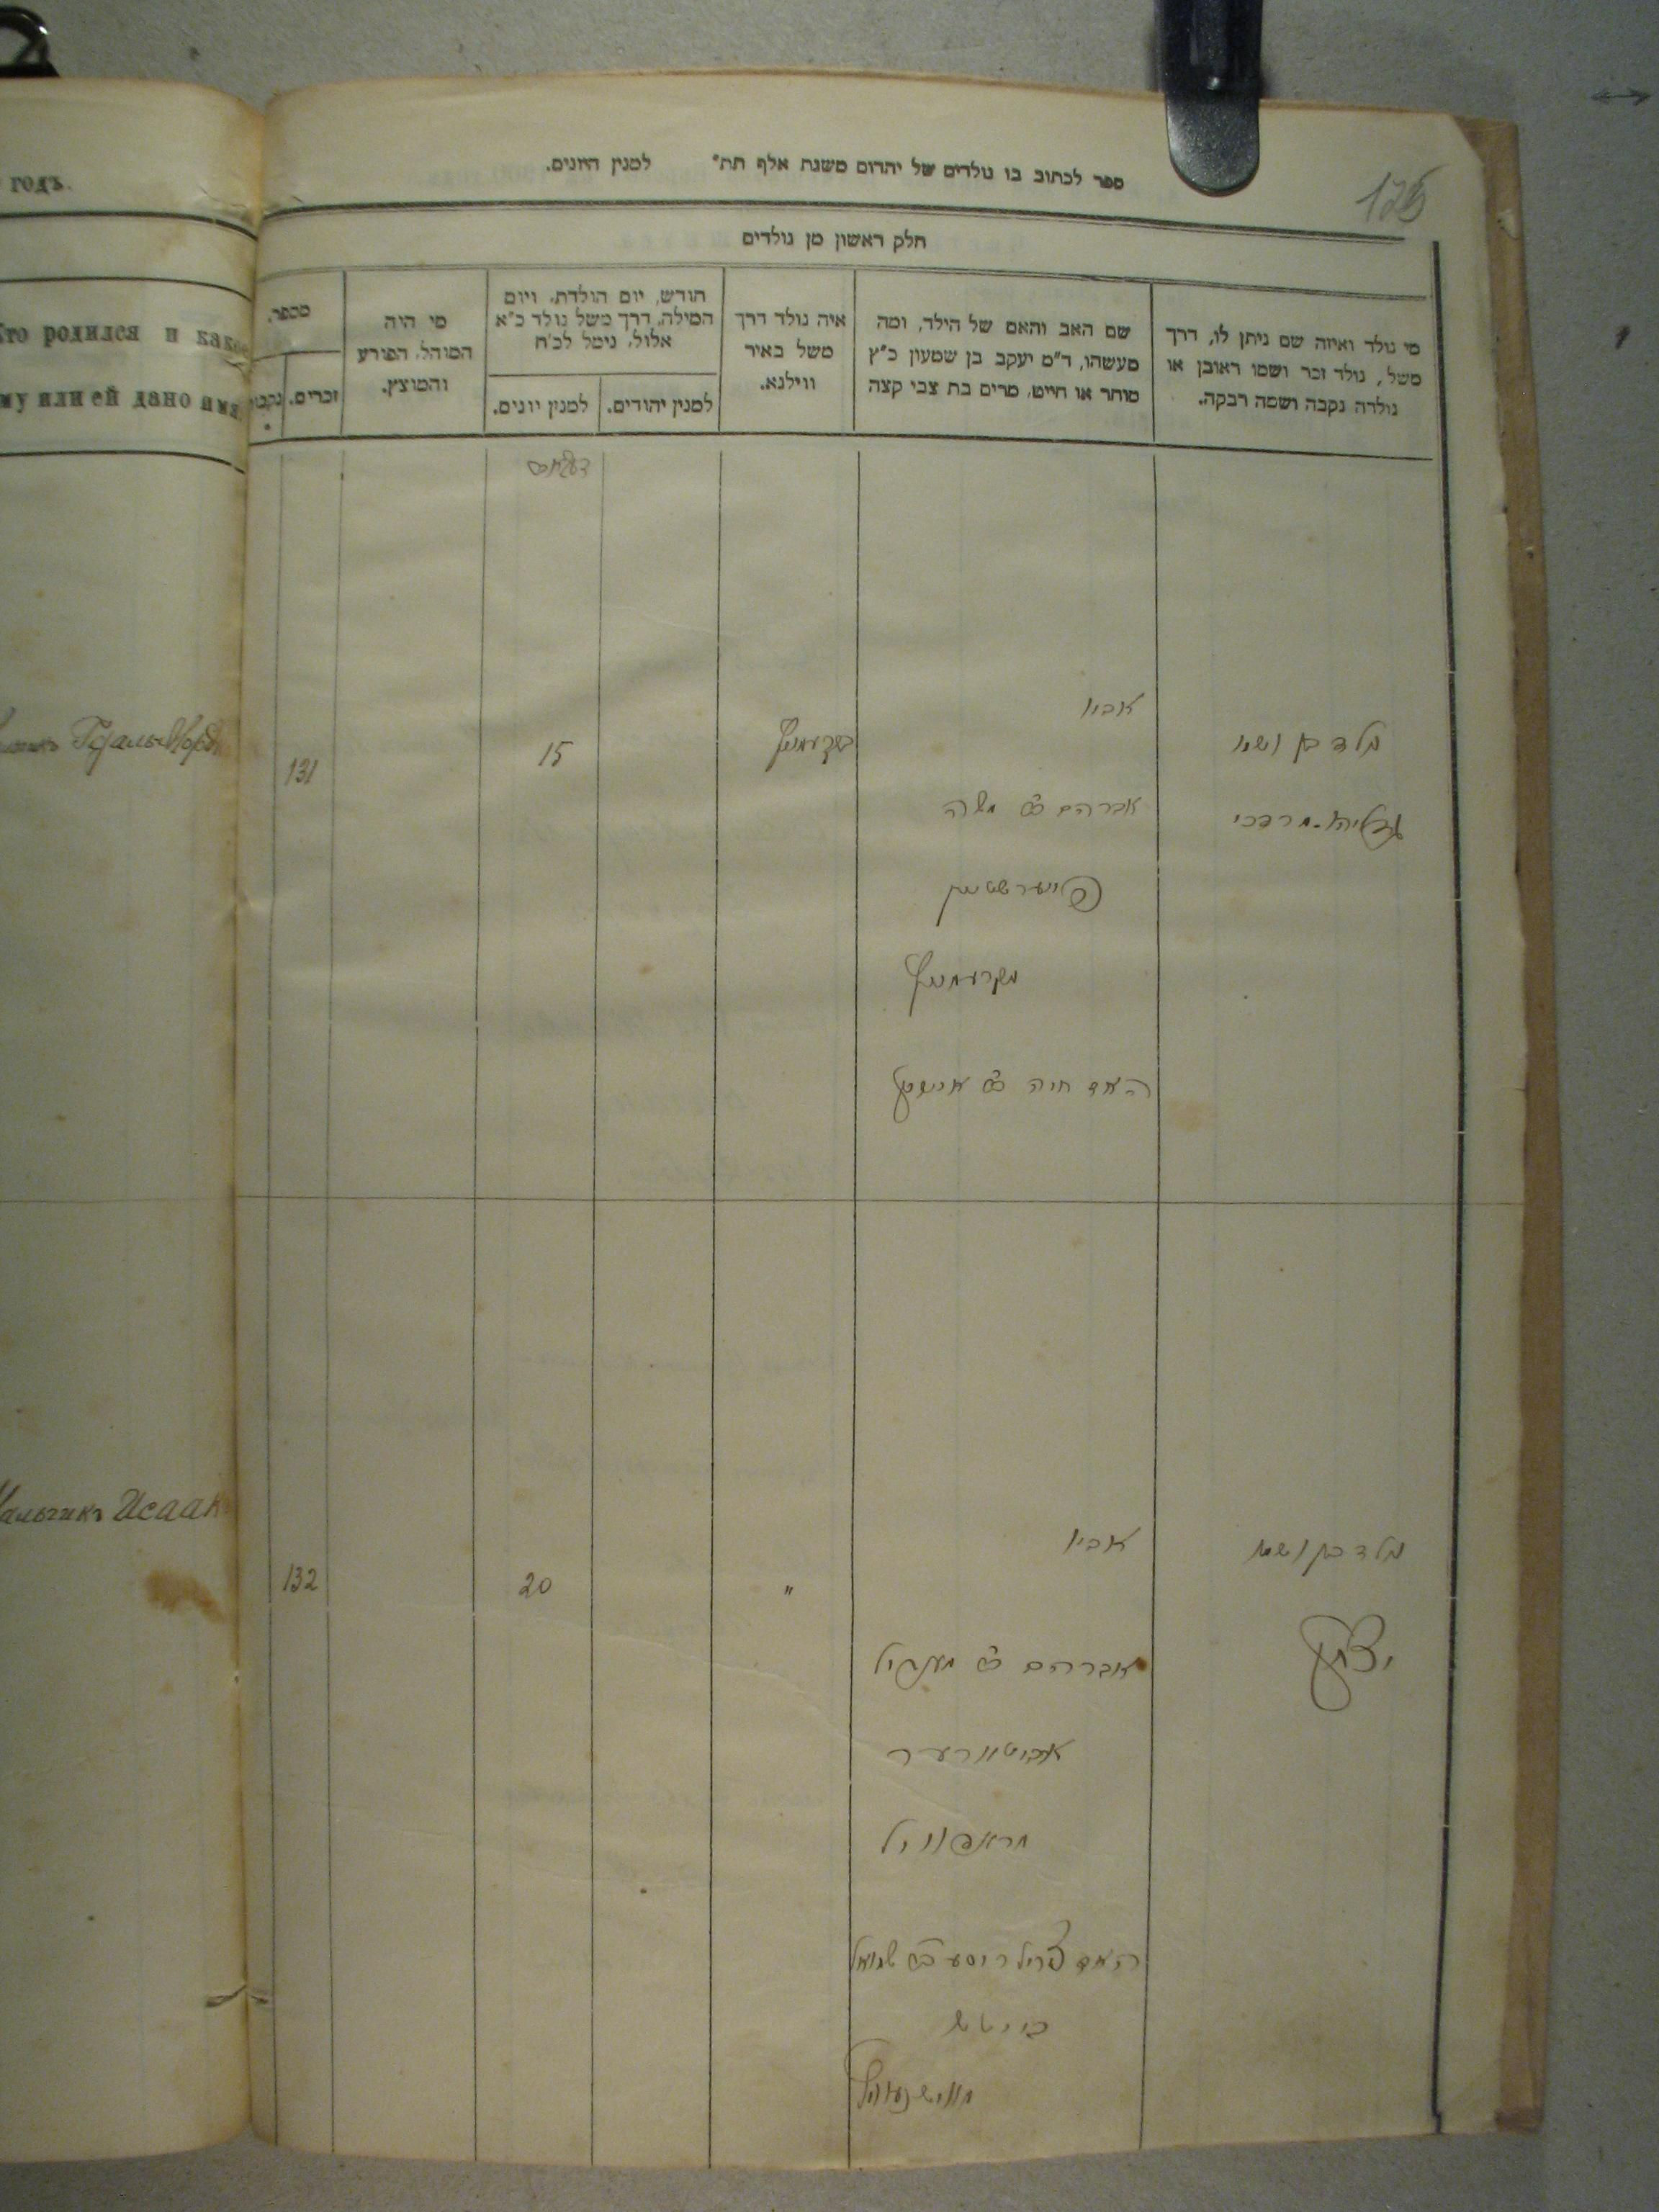 годъ.
Кто родился и какое
ему или ей дано имя
Гдаль Морд
Мальчикъ Исаакъ
125
ספר לכתוב בו נולדים של יהדום משנת אלף תת״ למנין היונים.
חלק ראשון מן נולדים
מי נולד ואיזה שם ניתן לו, דרך
משל, נולד זכר ושמו ראובן או
נולדה נקבה ושמה רבקה.
שם האב והאם של הילד, ומה
מעשהו, ד״מ יעקב בן שמעון כ״ץ
סוחר או חייט, מרים בת צבי קצה
איה נולד דרך
משל באיר
ווילנא.
חודש, יום הולדת, ויום
המילה, דרך משל נולד כ״א
אלול, ניטל לכ״ח
למנין יהודים.
למנין יונים.
מי היה
המוהל, הפורע
והמוצץ.
מספר.
זכרים.
נקבו
נולד בן ושמו
גדליהו-מרדכי
אביו
אברהם ב משה
פייערשטיין
מקרעמניץ
האם חיה ב אנשיל
בקרעמניץ
15
131
נולד בן ושמו
יצחק
אביו
אברהם ב מענדיל
אביטווירער
מראפוויל
האם פריל רוסע ב שמואל
"
20
132